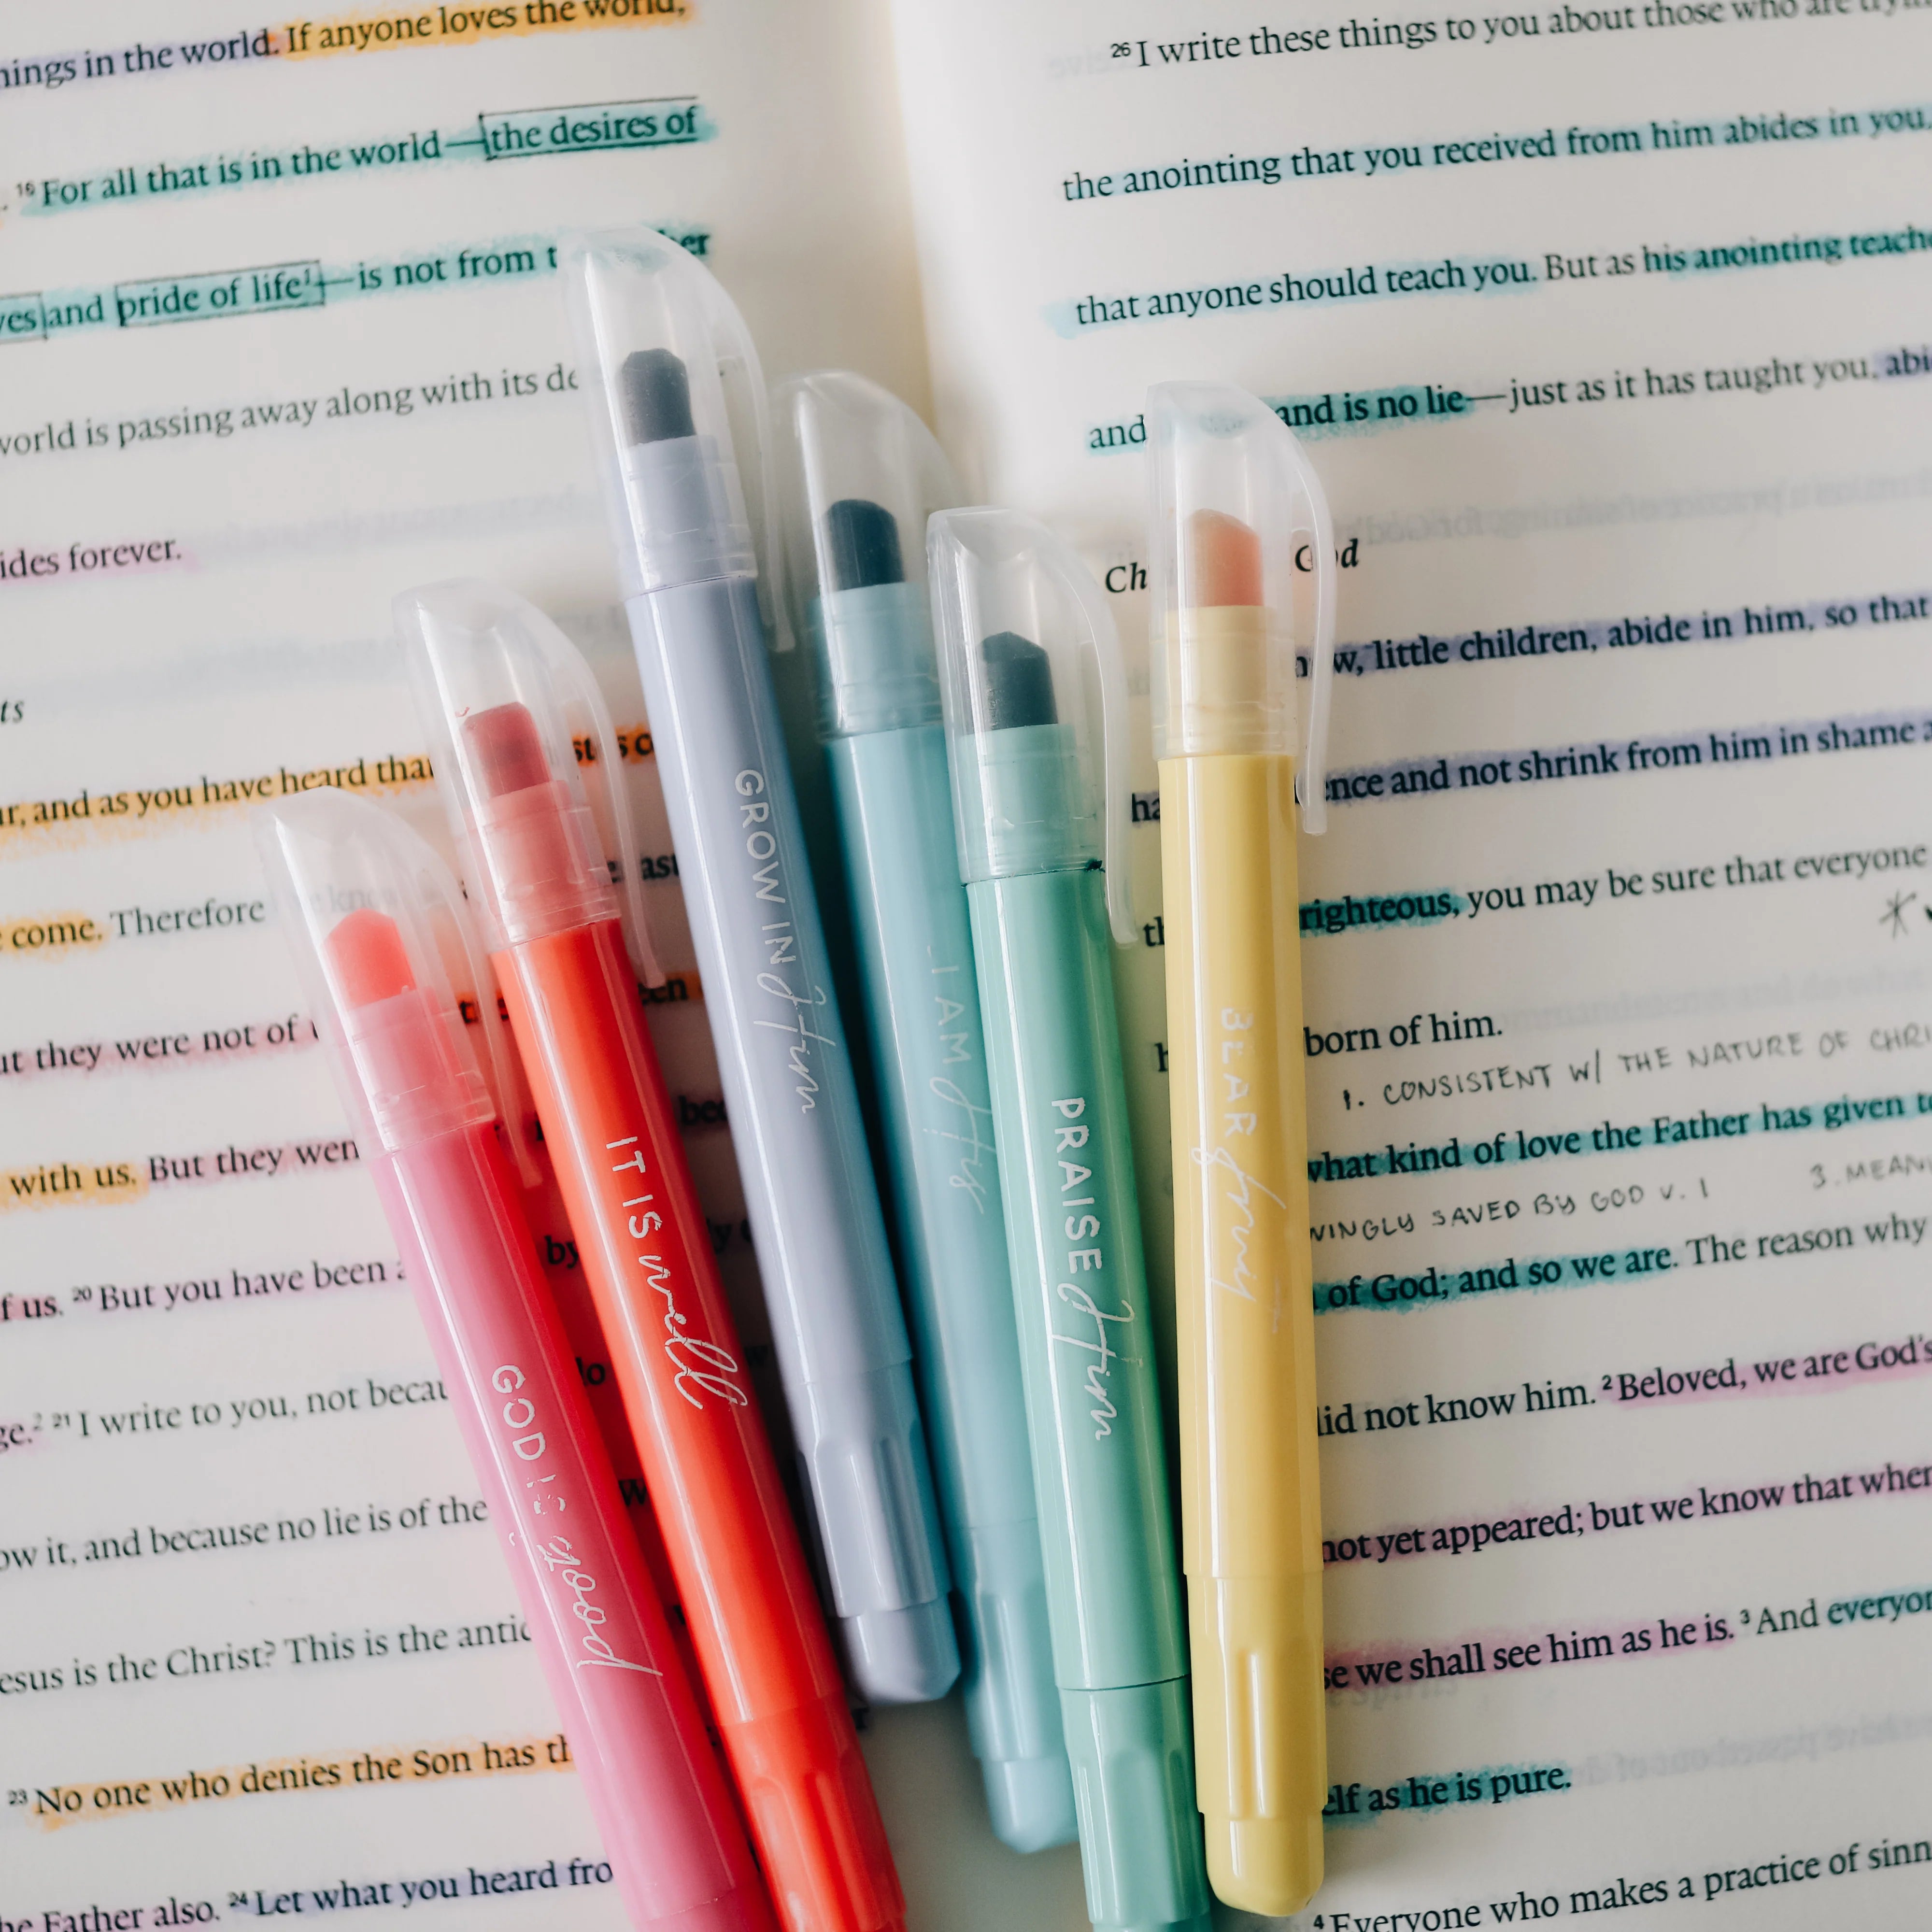 things in the world. If anyone loves the world,
. 16 For all that is in the world—the desires of
yes and pride of life1—is not from
world is passing away along with its
ides forever.
ts
ar, and as you have heard that
come. Therefore
ut they were not of
with us. But they
f us. 20 But you have been
ge.2 21 I write to you, not
ow it, and because no lie is of the
esus is the Christ? This is the
23 No one who denies the Son has
he Father also. 24 Let what you heard
GOD IS good
IT IS well
GROW IN Him
I AM His
PRAISE Him
BEAR fruit
26 I write these things to you about those who are
the anointing that you received from him abides in you,
that anyone should teach you. But as his anointing
and and is no lie—just as it has taught you,
God
little children, abide in him, so that
and not shrink from him in shame
righteous, you may be sure that everyone
born of him.
1. CONSISTENT W/ THE NATURE OF
what kind of love the Father has given
SAVED BY GOD V. 1 3. 
of God; and so we are. The reason why
did not know him. 2 Beloved, we are God's
not yet appeared; but we know that when
se we shall see him as he is. 3 And
elf as he is pure.
4 Everyone who makes a practice of